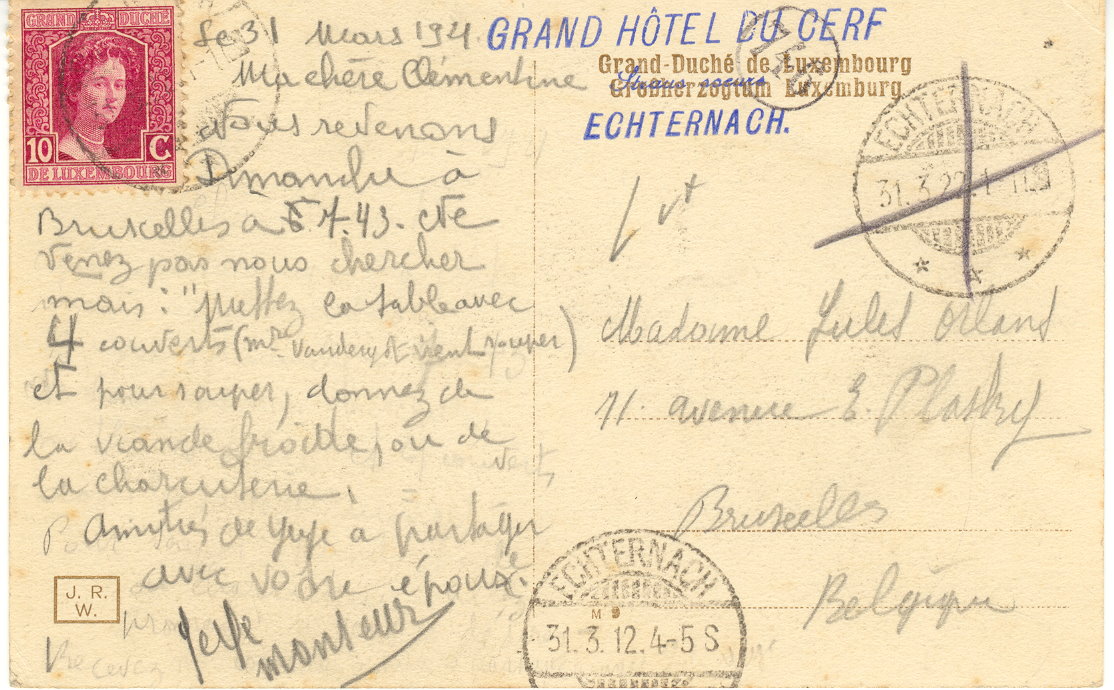 GRAND DUCHÉ
10 C
DE LUXEMBOURG
Le 31 Mars 192
Ma chère Clémentine
Nous revenons
Dimanche à
Bruxelles a 7.43. Ne
venez pas nous chercher
mais: "Mettez la table avec
4 couverts (mr vient souper)
et pour souper, donnez de
la viande froide, ou de
la charcuterie.
Amitiés de à partager
avec votre époux.
monsieur
J. R.
W.
GRAND HÔTEL DU CERF
Grand-Duché de Luxembourg
Straus soeurs
Großherzogtum Luxemburg
ECHTERNACH.
ECHTERNACH
31.3.22.
Madame Jules Orlans
11. avenue E. Plasky
Bruxelles
Belgique
ECHTERNACH
31.3.12.4-5 S